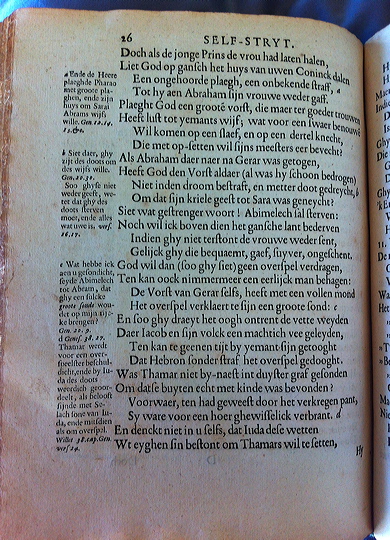 26 SELF-STRYT.
Doch als de jonge Prins de vrou had laten halen,
Liet God op gansch het huys van uwen Coninck dalen
Een ongehoorde plaegh, een onbekende straff, a
Tot hy aen Abraham sijn vrouwe weder gaff.
Plaeght God een groote vorst, die maer ter goeder trouwen
Heeft lust tot yemants wijf; wat voor een swaer benouwen
Wil komen op een slaef, en op een dertel knecht,
Die met op-setten wil sijns meesters eer bevecht?
Als Abraham daer naer na Gerar was getogen,
Heeft God den Vorst aldaer (al was hy schoon bedrogen)
Niet inden droom bestraft, en metter doot gedreycht, b
Om dat sijn kriele geest tot Sara was geneycht?
Siet wat gestrenger woort! Abimelech sal sterven:
Noch wil ick boven dien het gansche lant bederven
Indien ghy niet terstont de vrouwe weder sent,
Gelijck ghy die bequaemt, gaef, suyver, ongeschent.
God wil dan (soo ghy siet) geen overspel verdragen,
Ten kan oock nimmermeer een eerlijck man behagen:
De Vorst van Gerar selfs, heeft met een vollen mond
Het overspel verklaert te sijn een groote sond: c
En soo ghy draeyt het oogh ontrent de vette weyden
Daer Jacob en sijn volck een machtich vee geleyden,
Ten kan te geenen tijt by yemant sijn getooght
Dat Hebron sonder straf het overspel gedooght.
Was Thamar niet by-naest int duyster graf gesonden
Om datse buyten echt met kinde was bevonden?
Voorwaer, ten had geweest door het verkregen pant,
Sy ware voor een hoer ghewisselick verbrant. d
En denckt niet in u selfs, dat Iuda dese wetten
Wt eyghen sin bestont om Thamars wil te setten,
Hy
a Ende de Heere
plaeghde Pharao
met groote pla-
ghen, ende sijn
huys om Sarai
Abrams wijfs
wille. Gen. 12.14.
b Siet daer, ghy
zijt des doots om
des wijfs wille.
Gen. 20. 30.
Soo ghyse niet
wedergeeft, we-
tet dat ghy des
doots sterven
moet, ende alles
wat uwe is. vers.
16.17.
c Wat hebbe ick
aen u gesondicht,
seyde Abimelech
tot Abram, dat
ghy een sulcke
groote sonde wou-
det op mijn rijc-
ke brengen?
Gen. 20. 9.
d Genes. 38. 27.
Thamar werdt
voor een over-
speelster beschul-
dicht, ende by Iu-
da des doots
weerdich geoor-
deelt, als belooft
sijnde met Se-
lach sone van Iu-
da, ende mitsdien
als om overspel.
Willet 38. cap. Gen.
vers 24.